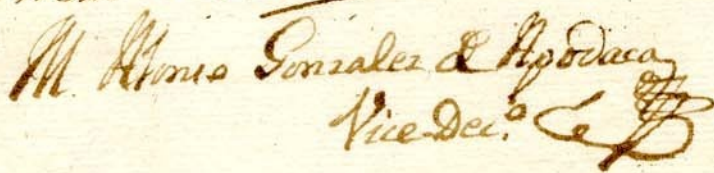 M. Antonio Gonzalez de Apodaca
Vice-Dec.º